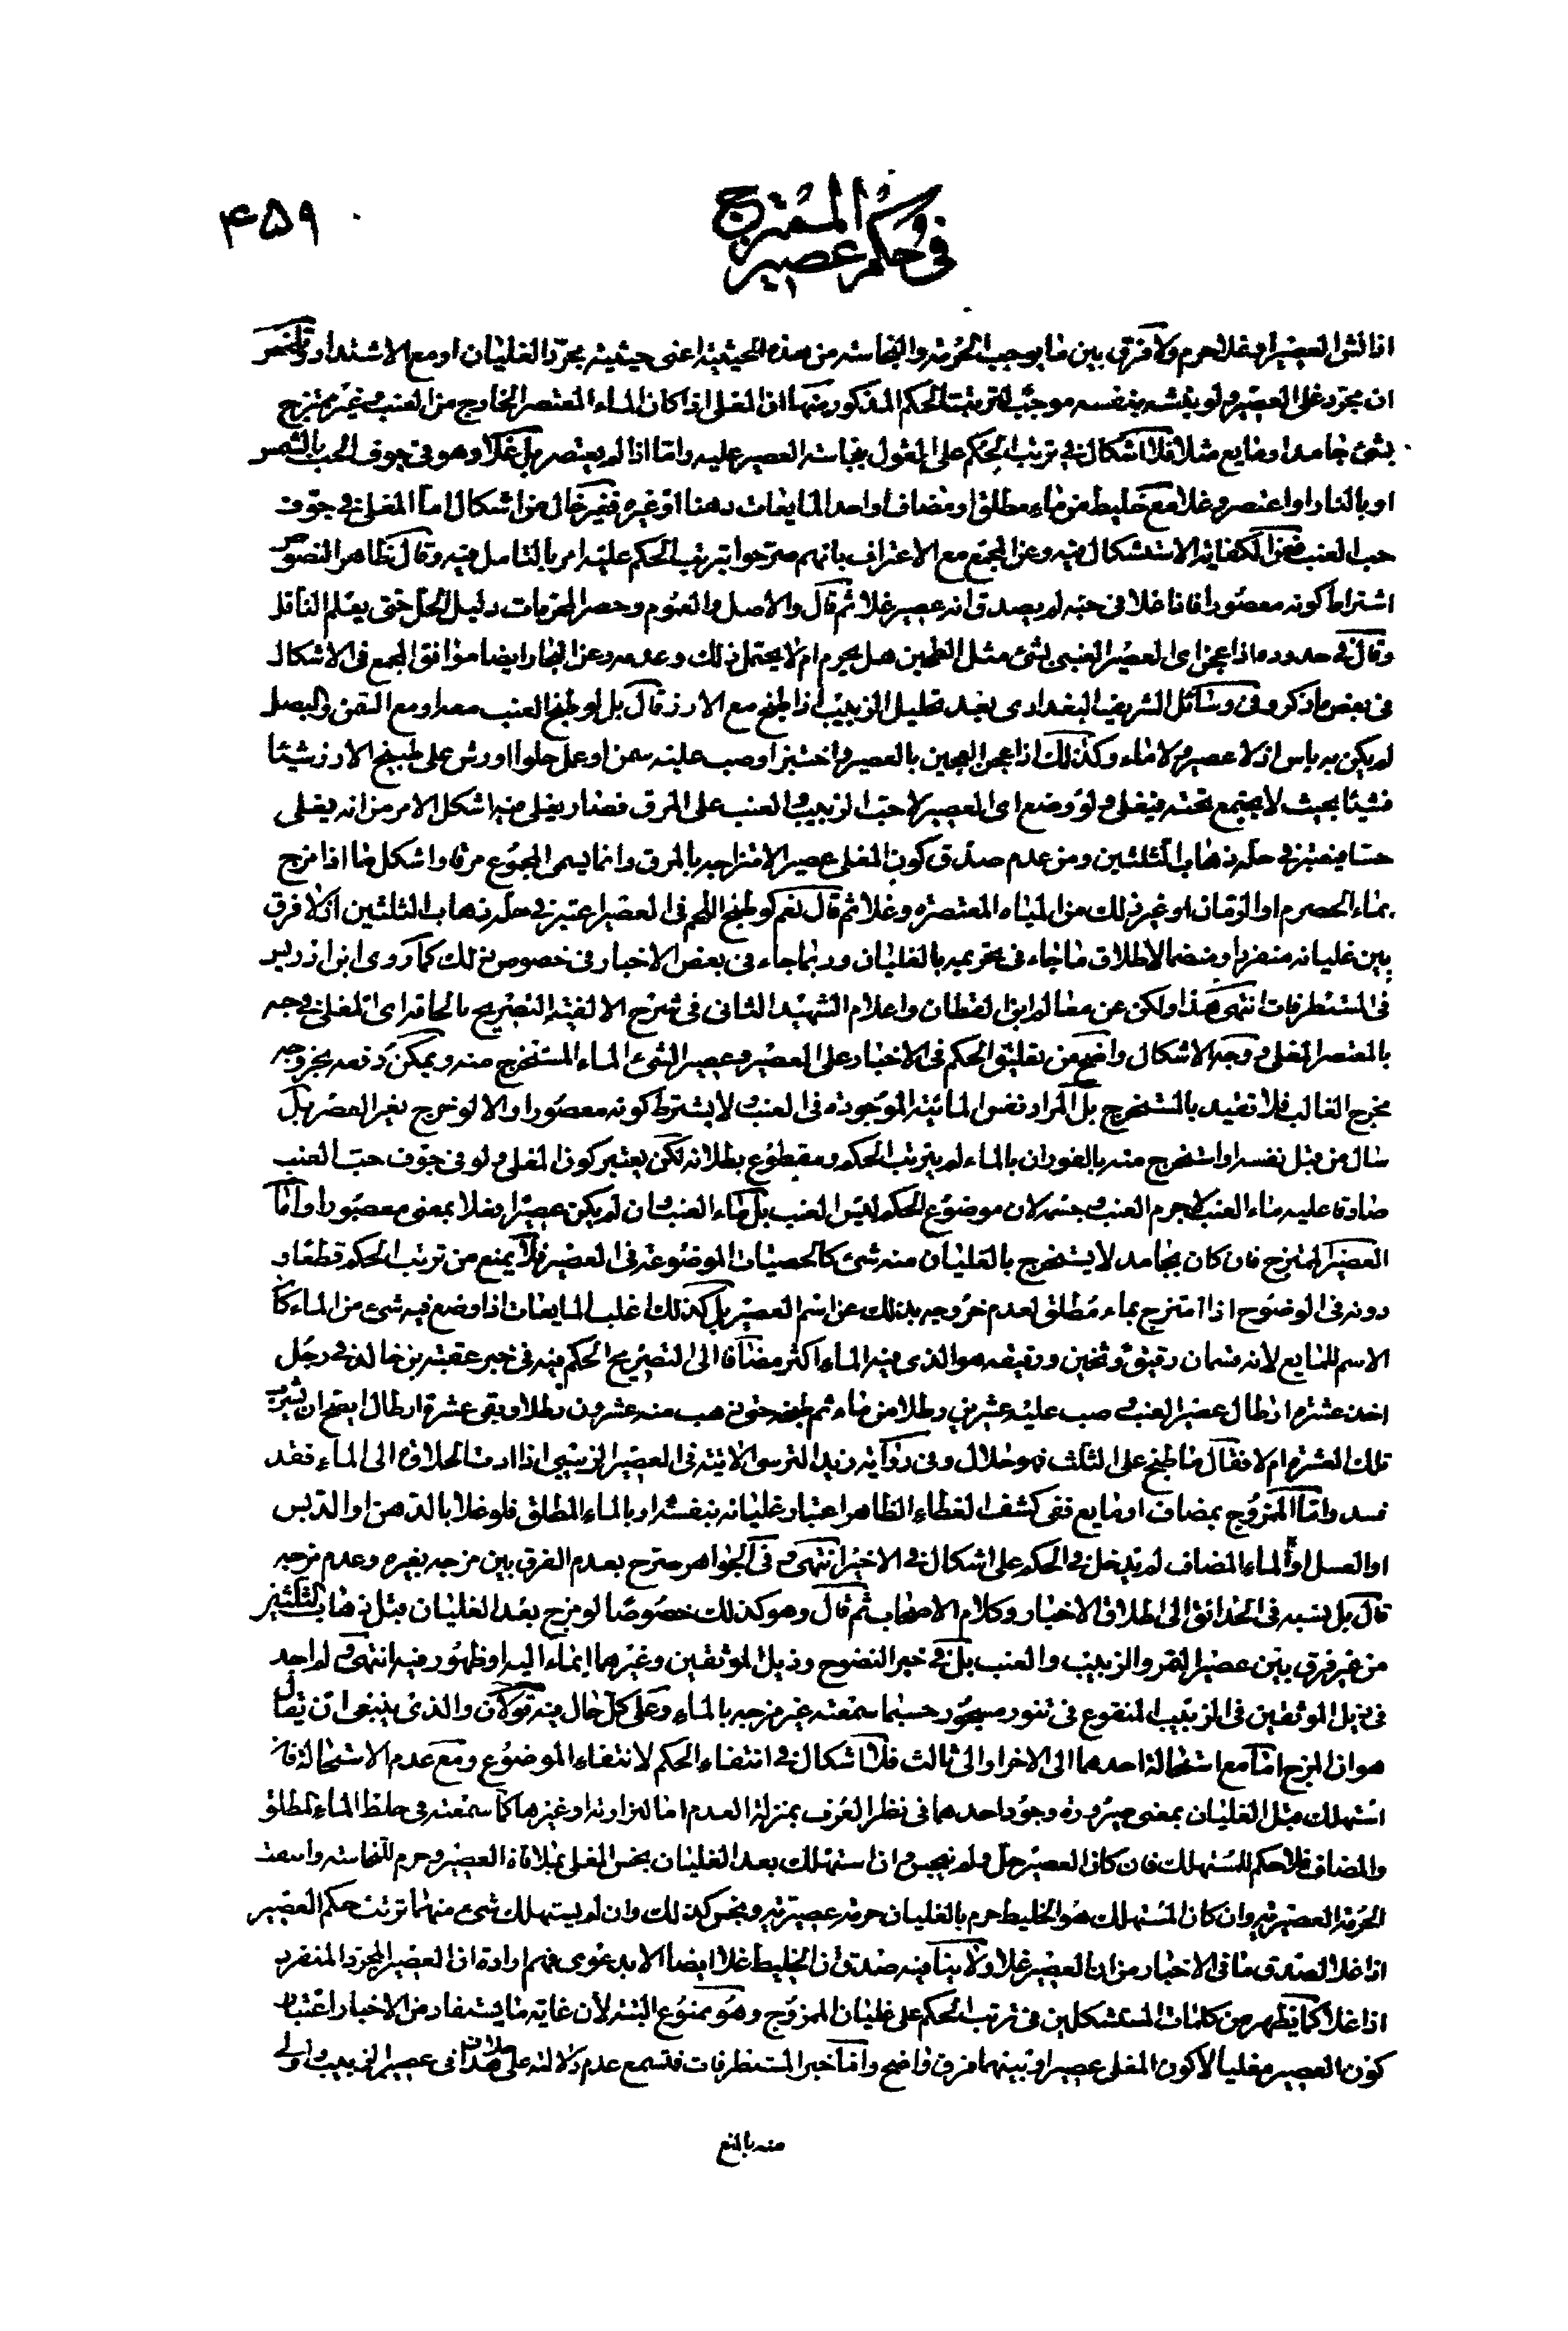 ۴۵۹
في حكم عصير الممتزج
اذا نش العصير او غلا حرم ولا فرق بين ما يوجب الحرمة والنجاسة من هذه الحيثية اعنى حيثية مجرّد الغليان او مع الاشتداد
ان مجرّد غلى العصير ولو بنفسه موجب لترتب الحكم المذكور منها ان المغلى اذا كان الماء المعتصر الخارج من العنب غير ممتزج
بشئ جامد او مايع مثلا فلا اشكال في ترتب الحكم على القول بنجاسة العصير عليه وامّا اذا لم يعتصر بل غلا وهو في جوف الحب بالشمس
او بالنار او اعتصر وغلا مع خليط من ماء مطلق او مضاف او احد المايعات دهنا او غيره فغير خال من اشكال امّا المغلى في جوف
حب العنب فعن الكفاية الاستشكال فيه وعن المجمع مع الاعتراف بانهم صرّحوا بترتب الحكم عليه امر بالتامل فيه وقال ظاهر النصوص
اشتراط كونه معصورا فاذا غلا في حبه لم يصدق انه عصير غلا ثم قال والاصل والعموم وحصر المحرمات دليل الحل حتى يعلم الناقل
وقال في حدود ماذا عجن اى العصير العنبي بشئ مثل الطحين هل يحرم ام لا يحتمل ذلك وعدمه وعن البحار ايضا موافق المجمع في الاشكال
في بعض ما ذكر وفي رسائل الشريف البغدادى بعد تحليل الزبيب اذا طبخ مع الارز قال بل لو طبخ العنب معه او مع التقن والبصل
لم يكن به باس اذ لا عصير ولا ماء وكذلك اذا عجن العجين بالعصير واختبز او صب عليه سمن او عمل حلوا او رش على طبيخ الارز شيئا
فشيئا بحيث لا يجتمع تحته فيغلى ولو وضع اى العصير لا حب الزبيب والعنب على المرق فصار يغلى فيه اشكل الامر من انه يغلى
حسا فيعتبر في حله ذهاب الثلثين ومن عدم صدق كون المغلى عصيرا لامتزاجه بالمرق وانما يسمى المجموع مرقا واشكل منه ما اذا مزج
بماء الحصرم او الرمان او غير ذلك من المياه المعتصرة وغلا ثم قال نعم لو طبخ اللحم في العصير اعتبر في حله ذهاب الثلثين اذ لا فرق
بين غليانه منفردا ومنضما لاطلاق ما جاء في تحريمه بالغليان وربما جاء في بعض الاخبار في خصوص ذلك كما روى ابن ادريس
في المستطرفات انتهى هذا ولكن عن معالم ابن القطان واعلام الشهيد الثاني في شرح الالفية التصريح بالحاقه اى المغلى في حبه
بالمعتصر المغلى ووجه الاشكال واضح من تعليق الحكم في الاخبار على العصير وعصير الشئ الماء المستخرج منه ويمكن دفعه بخروجه
مخرج الغالب فلا تقييد بالمستخرج بل المراد نفس المائية الموجودة في العنب لا يشترط كونه معصورا والا لو خرج بغير العصر بل
سال من قبل نفسه او استخرج منه بالفوران بالماء لم يترتب الحكم ومقطوع بطلانه لكن يعتبر كون المغلى ولو في جوف حب العنب
صادقا عليه ماء العنب لا جرم العنب وجسمه لان موضوع الحكم ليس العنب بل ماء العنب وان لم يكن عصيرا فعلا بمعنى معصورا وامّا
العصير الممتزج فان كان بجامد لا يستخرج بالغليان منه شئ كالحصيات الموضوعة في العصير فلا يمنع من ترتب الحكم قطعا و
دونه في الوضوح اذا امتزج بماء مطلق لعدم خروجه بذلك عن اسم العصير بل كذلك اغلب المايعات اذا وضع فيه شئ من الماء كان
الاسم للمايع لانه قسمان رقيق وثخين ورقيقه هو الذى فيه الماء اكثر مضافا الى التصريح الحكم فيه في خبر عقبة بن خالد في رجل
اخذ عشرة ارطال عصير العنب صب عليه عشرين رطلا من ماء ثم طبخه حتى ذهب منه عشرون رطلا وبقى عشرة ارطال ايصح ان يشرب
تلك العشرة ام لا فقال ما طبخ على الثلث فهو حلال وفي رواية زيد النرسى الاتية في العصير الزبيبى اذا ادت الحلاوة الى الماء فقد
فسد وامّا الممزوج بمضاف او مايع ففي كشف الغطاء الظاهر اعتبار غليانه بنفسه او بالماء المطلق فلو غلا بالدهن او الدبس
او العسل او الماء المضاف لم يدخل في الحكم على اشكال في الاخير انتهى وفي الجواهر صرّح بعدم الفرق بين مزجه بغيره وعدم مزجه
قال بل نسبه في الحدائق الى اطلاق الاخبار وكلام الاصحاب ثم قال وهو كذلك خصوصا لو مزج بعد الغليان قبل ذهاب الثلثين
من غير فرق بين عصير التمر والزبيب والعنب بل في خبر النضوح وذيل الموثقين وغيرهما ايماء اليه او ظهور فيه انتهى ولم اجد
في ذيل الموثقين في الزبيب المنقوع في تنور مسجور حسبما سمعته غير مزجه بالماء وعلى كل حال فيه قولان والذى ينبغى ان يقال
هو ان المزج امّا مع استحالة احدهما الى الاخر او الى ثالث فلا اشكال في انتفاء الحكم لانتفاء الموضوع ومع عدم الاستحالة فان
استهلك قبل الغليان بمعنى صيرورة وجود احدهما في نظر العرف بمنزلة العدم اما لنزارته او غيرها كما سمعته في خلط الماء المطلق
والمضاف فلا حكم للمستهلك فان كان العصير حل ولم ينجس وان استهلك بعد الغليان نجس المغلى بملاقاة العصير وحرم للنجاسة وانتفت
الحرمة العصيرية وان كان المستهلك هو الخليط حرم بالغليان حرمة عصيرية ونجس كذلك وان لم يستهلك شئ منهما ترتب حكم العصير
اذا غلا لصدق ما في الاخبار من ان العصير غلا ولا ينافيه صدق ان الخليط غلا ايضا الا بدعوى فهم ارادة ان العصير المجرّد المنفرد
اذا غلا كما يظهر من كلمات المستشكلين في ترتب الحكم على غليان الممزوج وهو ممنوع البتة لان غاية ما يستفاد من الاخبار اعتبار
كون العصير مغليا لا كون المغلى عصيرا وبينهما فرق واضح وامّا خبر المستطرفات فتسمع عدم دلالته على هذا في عصير الزبيب واولى
منه بالمنع